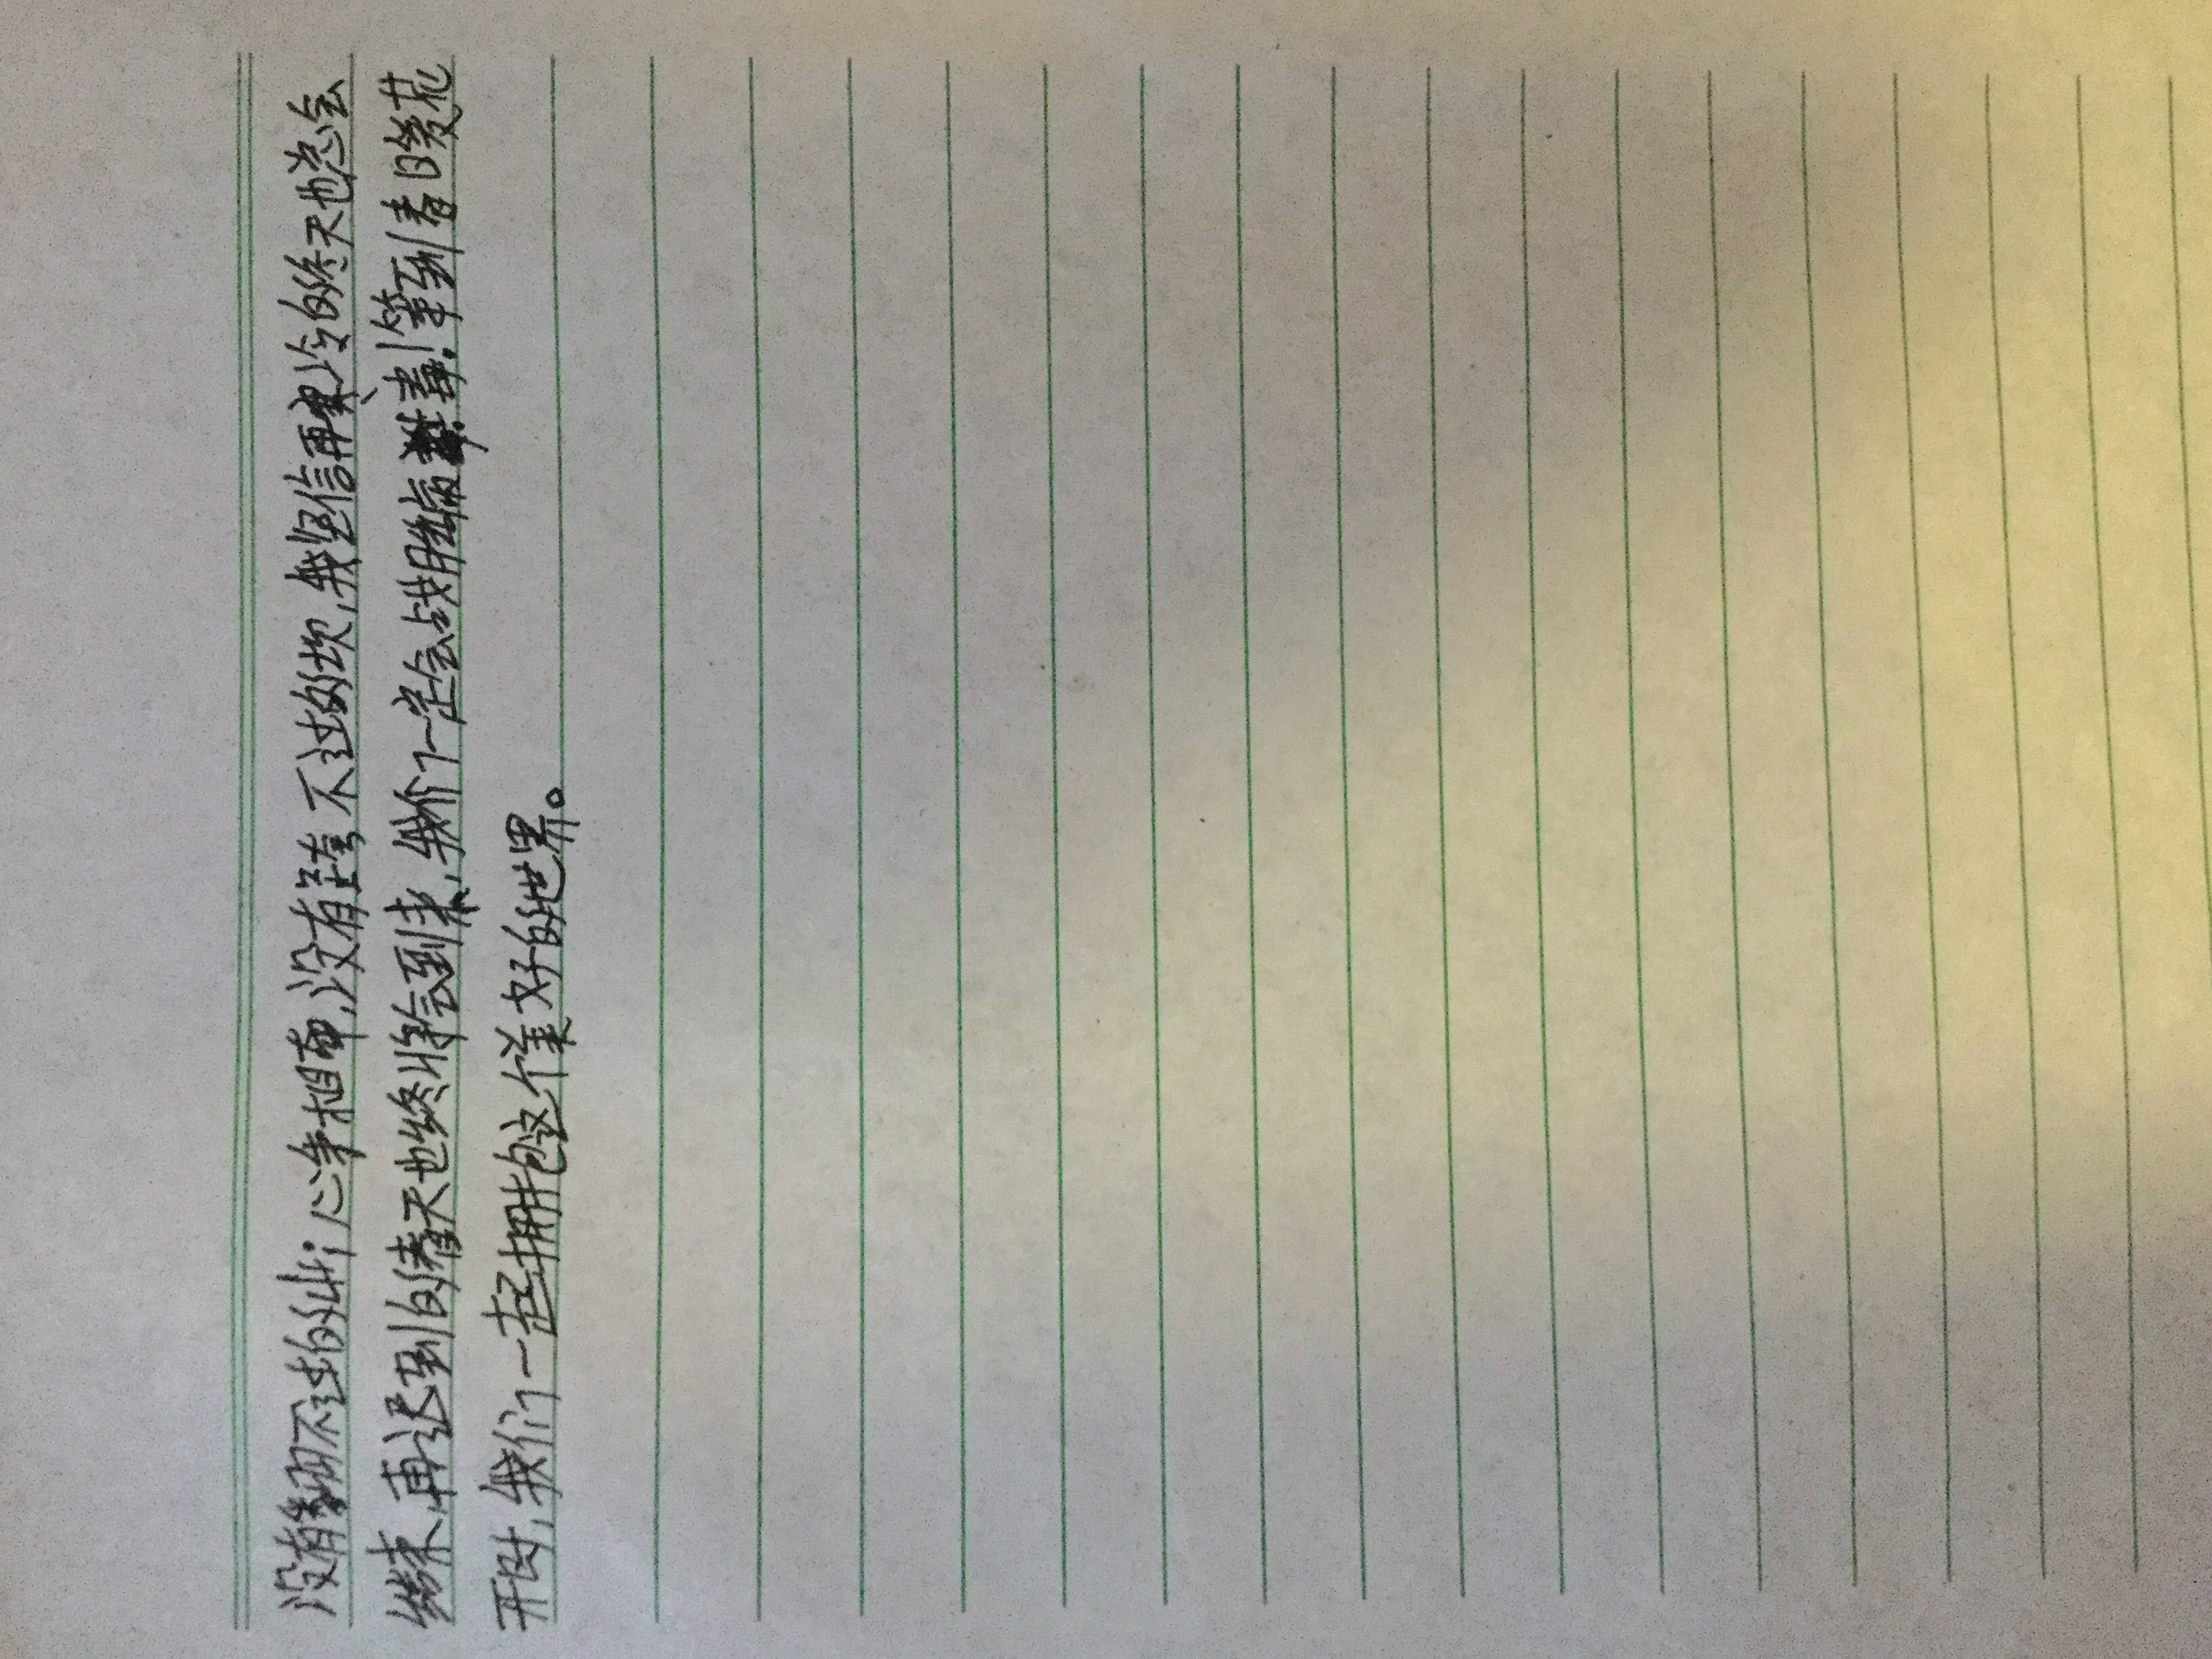 没有翻不过的山；心手相牵，没有跨不过的坎，我坚信再寒冷的冬天也总会
结束，再迟到的春天也终将会到来，我们一定会战胜病毒！等到春暖花
开时，我们一起拥抱这个美好的世界。